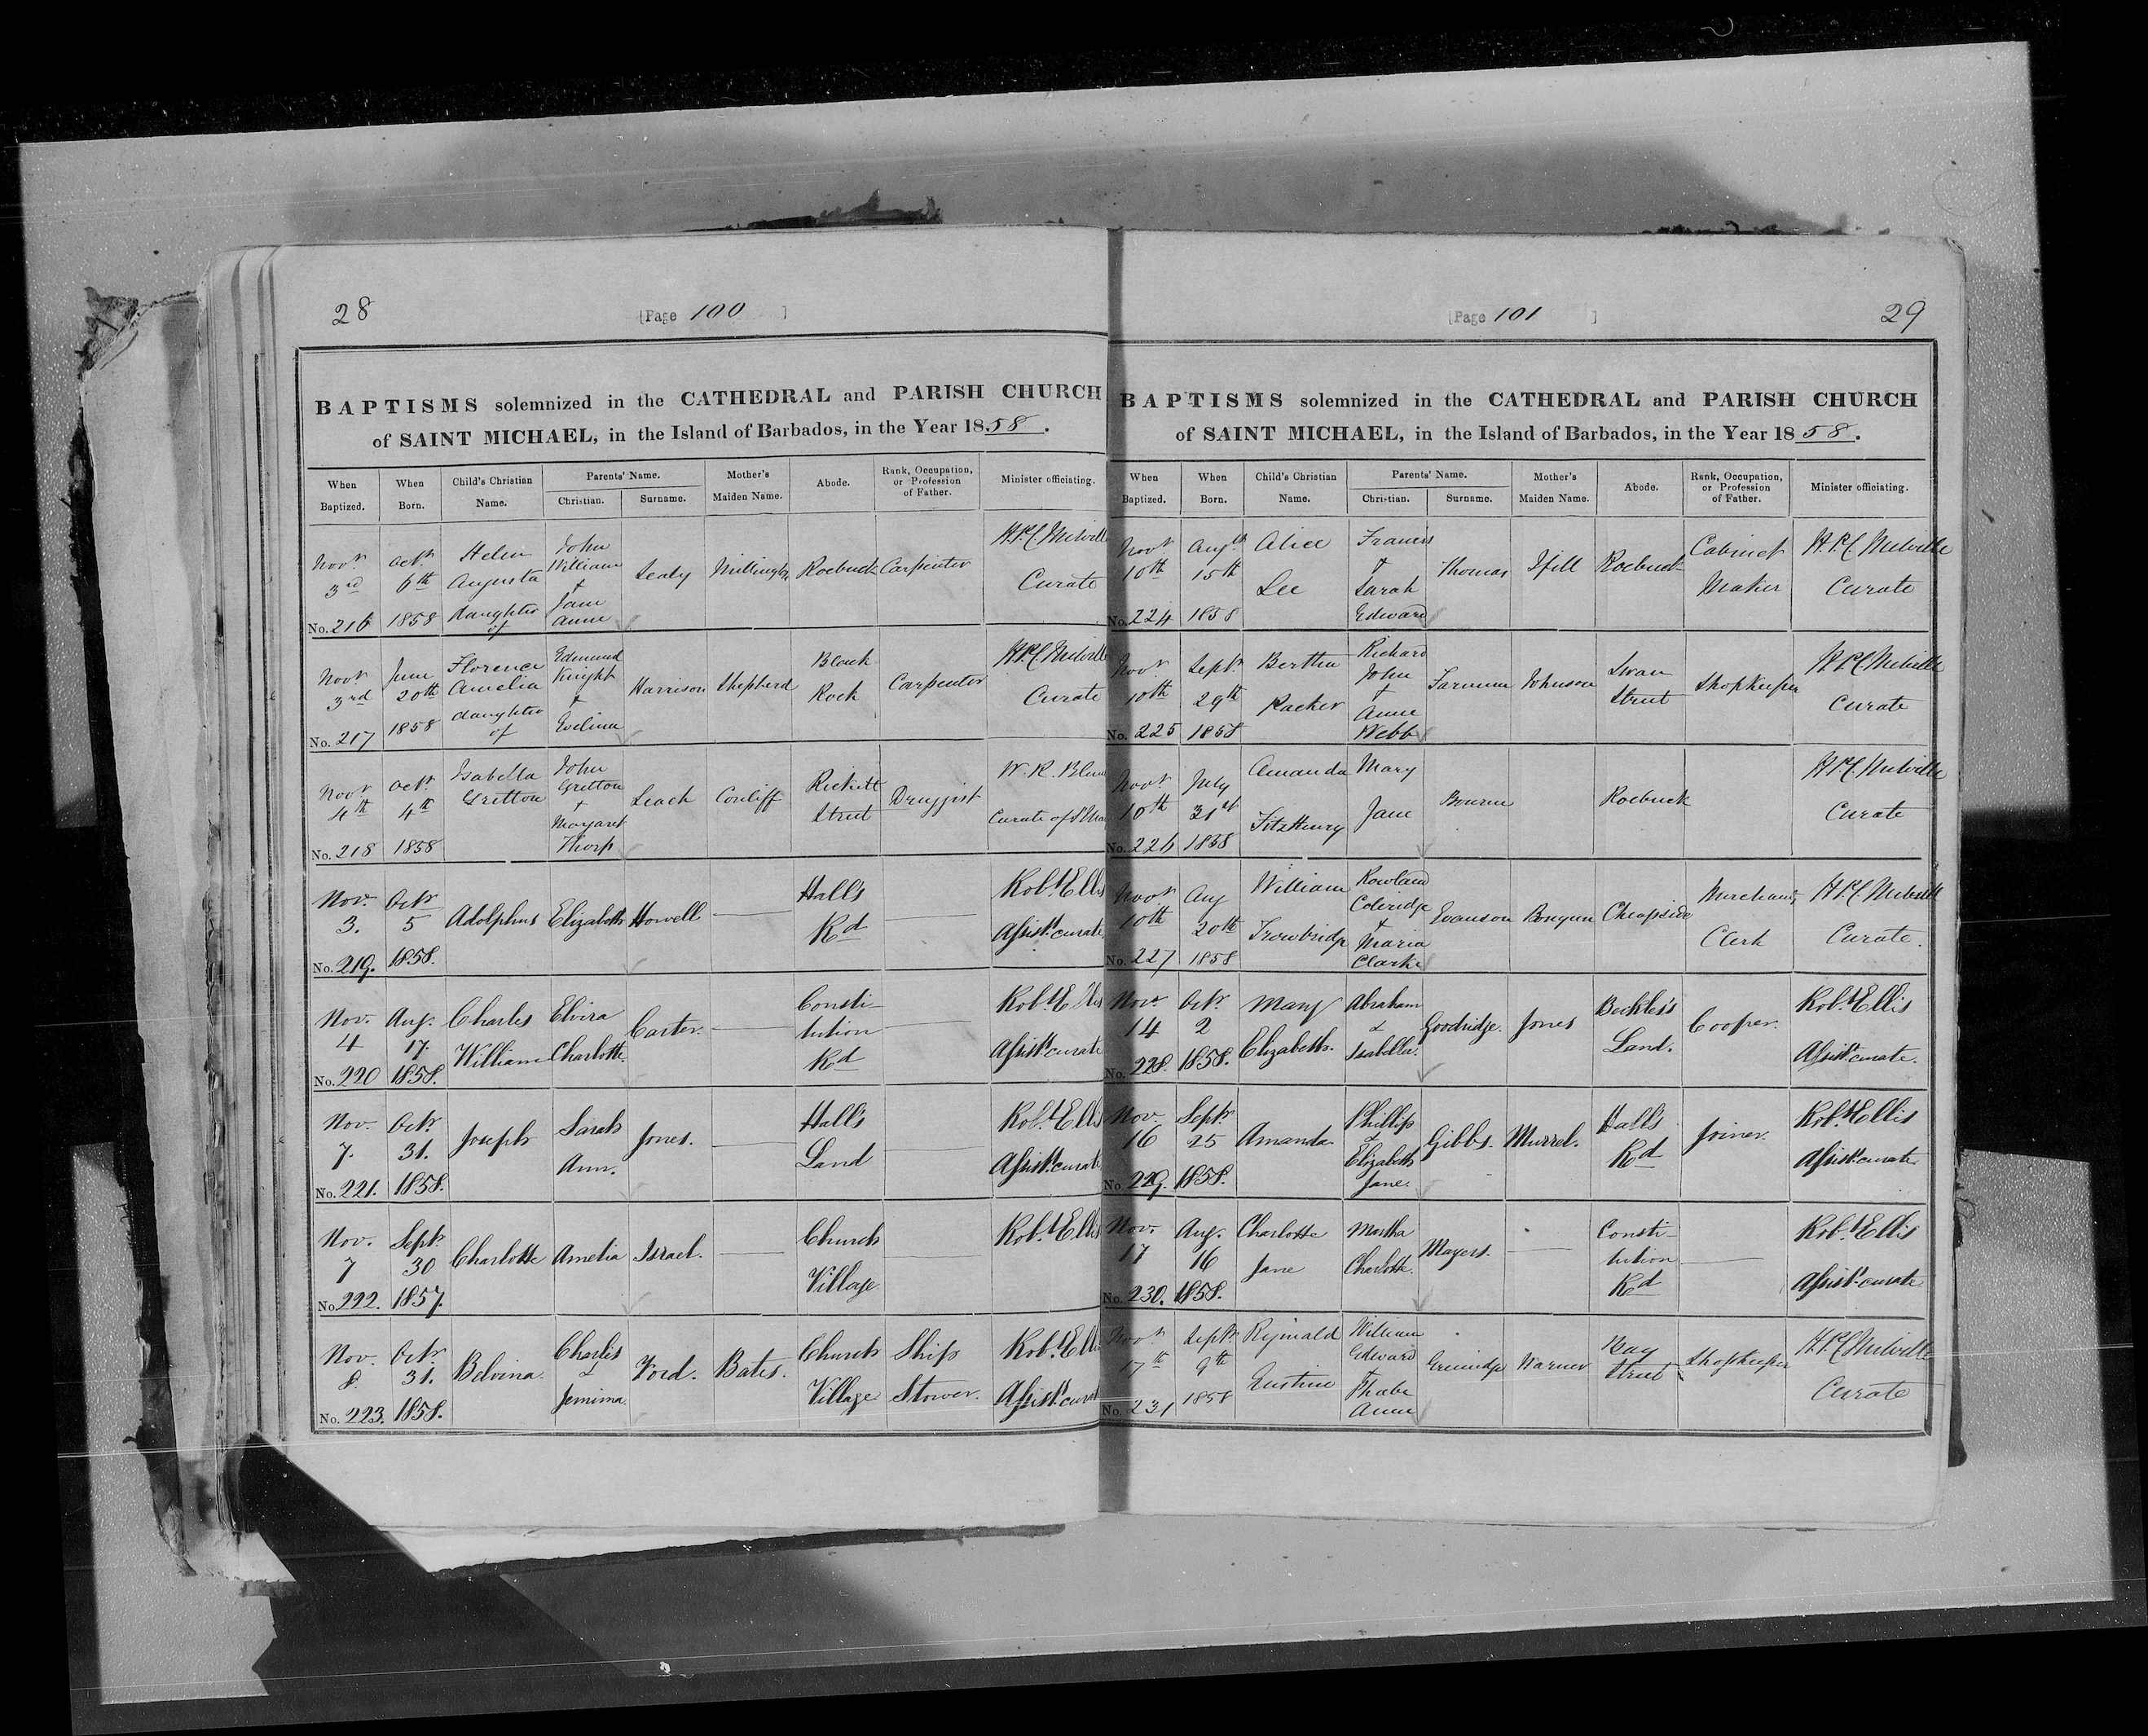 28
[Page 100 ]
BAPTISMS solemnized in the CATHEDRAL and PARISH CHURCH
of SAINT MICHAEL, in the Island of Barbados, in the Year 1858.
When Baptized. When Born. Child's Christian Name. Parents' Name. Christian. Surname. Mother's Maiden Name. Abode. Rank, Occupation, or Profession of Father. Minister officiating.
Novr 3rd No. 216 Octr 6th 1858 Helen Augusta daughter of John William + Jane Anne Sealy Millington Roebuck Carpenter Curate
Novr 3rd No. 217 June 20th 1858 Florence Amelia daughter of Edmund Knight + Evelina Harrison Shepherd Black Rock Carpenter Curate
Novr 4th No. 218 Octr 4th 1858 Isabella Gretton John Gretton + Margaret Thorp Leach Rickett Street Druggist W. R. Curate of
Nov. 3. No. 219. Octr 5 1858. Adolphus Elizabeth Howell Hall's Rd Robt Ellis Assist. curate
Nov. 4 No. 220 Aug. 17. 1858. Charles William Elvira Charlotte Carter. Consti-tution Rd Robt Ellis Assist. curate
Nov. 7. No. 221. Octr 31. 1858. Joseph Sarah Ann. Jones. Hall's Land Robt Ellis Assist. curate
Nov. 7 No. 222. Sept. 30 1857. Charlotte Amelia Israel. Church Village Robt Ellis
Nov. 8. No. 223. Octr 31. 1858. Belvina. Charles & Jemima. Ford. Bates. Church Village Ship Stower. Robt Ellis Assist. curate
29
[Page 101 ]
BAPTISMS solemnized in the CATHEDRAL and PARISH CHURCH
of SAINT MICHAEL, in the Island of Barbados, in the Year 1858.
When Baptized. When Born. Child's Christian Name. Parents' Name. Christian. Surname. Mother's Maiden Name. Abode. Rank, Occupation, or Profession of Father. Minister officiating.
Novr 10th No. 224 Augst 15th 1858 Alice Lee Francis + Sarah Edward Thomas Ifill Roebuck Cabinet Maker Melville Curate
Novr 10th No. 225 Septr 29th 1858 Bertha Richard John + Anne Webb Johnson Swan Street Shopkeeper Melville Curate
Novr 10th No. 226 July 31st 1858 Amanda FitzHenry Mary Jane Bourne Roebuck Melville Curate
Novr 10th No. 227 Aug 20th 1858 William Trowbridge Rowland Coleridge + Maria Clarke Evanson Cheapside Merchants Clerk Melville Curate.
Nov. 14 No. 228. Octr 2 1858. Mary Elizabeth. Abraham & Isabella. Goodridge. Jones Beckles's Land. Cooper. Robt Ellis Assist. curate.
Nov 16 No. 229. Septr 25 1858. Amanda Phillip & Elizabeth Jane. Gibbs. Murrel. Hall's Rd Joiner. Robt Ellis Assist. curate
Nov. 17 No. 230. Aug. 16 1858. Charlotte Jane Martha Charlotte. Mayers. Consti-tution Rd Robt Ellis Assist. curate
Novr 17th No. 231 Septr 9th 1858 William Edward + Phoebe Anne Warner Bay Street Shopkeeper Melville Curate